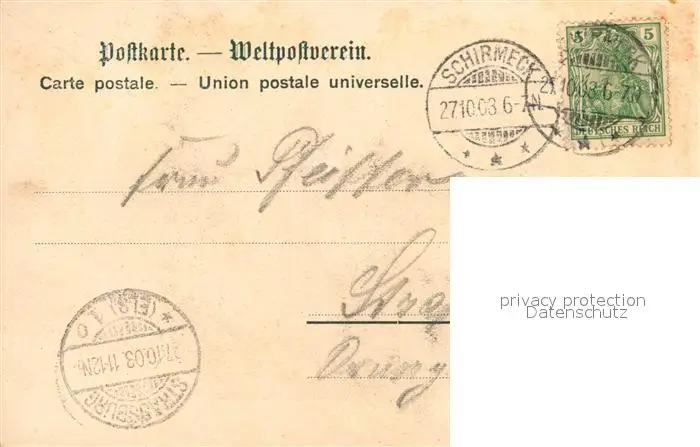 Postkarte. — Weltpostverein.
Carte postale. — Union postale universelle.
SCHIRMECK
27.10.03.6-7N.
5
DEUTSCHES REICH
27.10.03.6-7N.
Frau
privacy protection
Datenschutz
STRASSBURG
27.10.03.11-12N.
* (ELS) 1 o